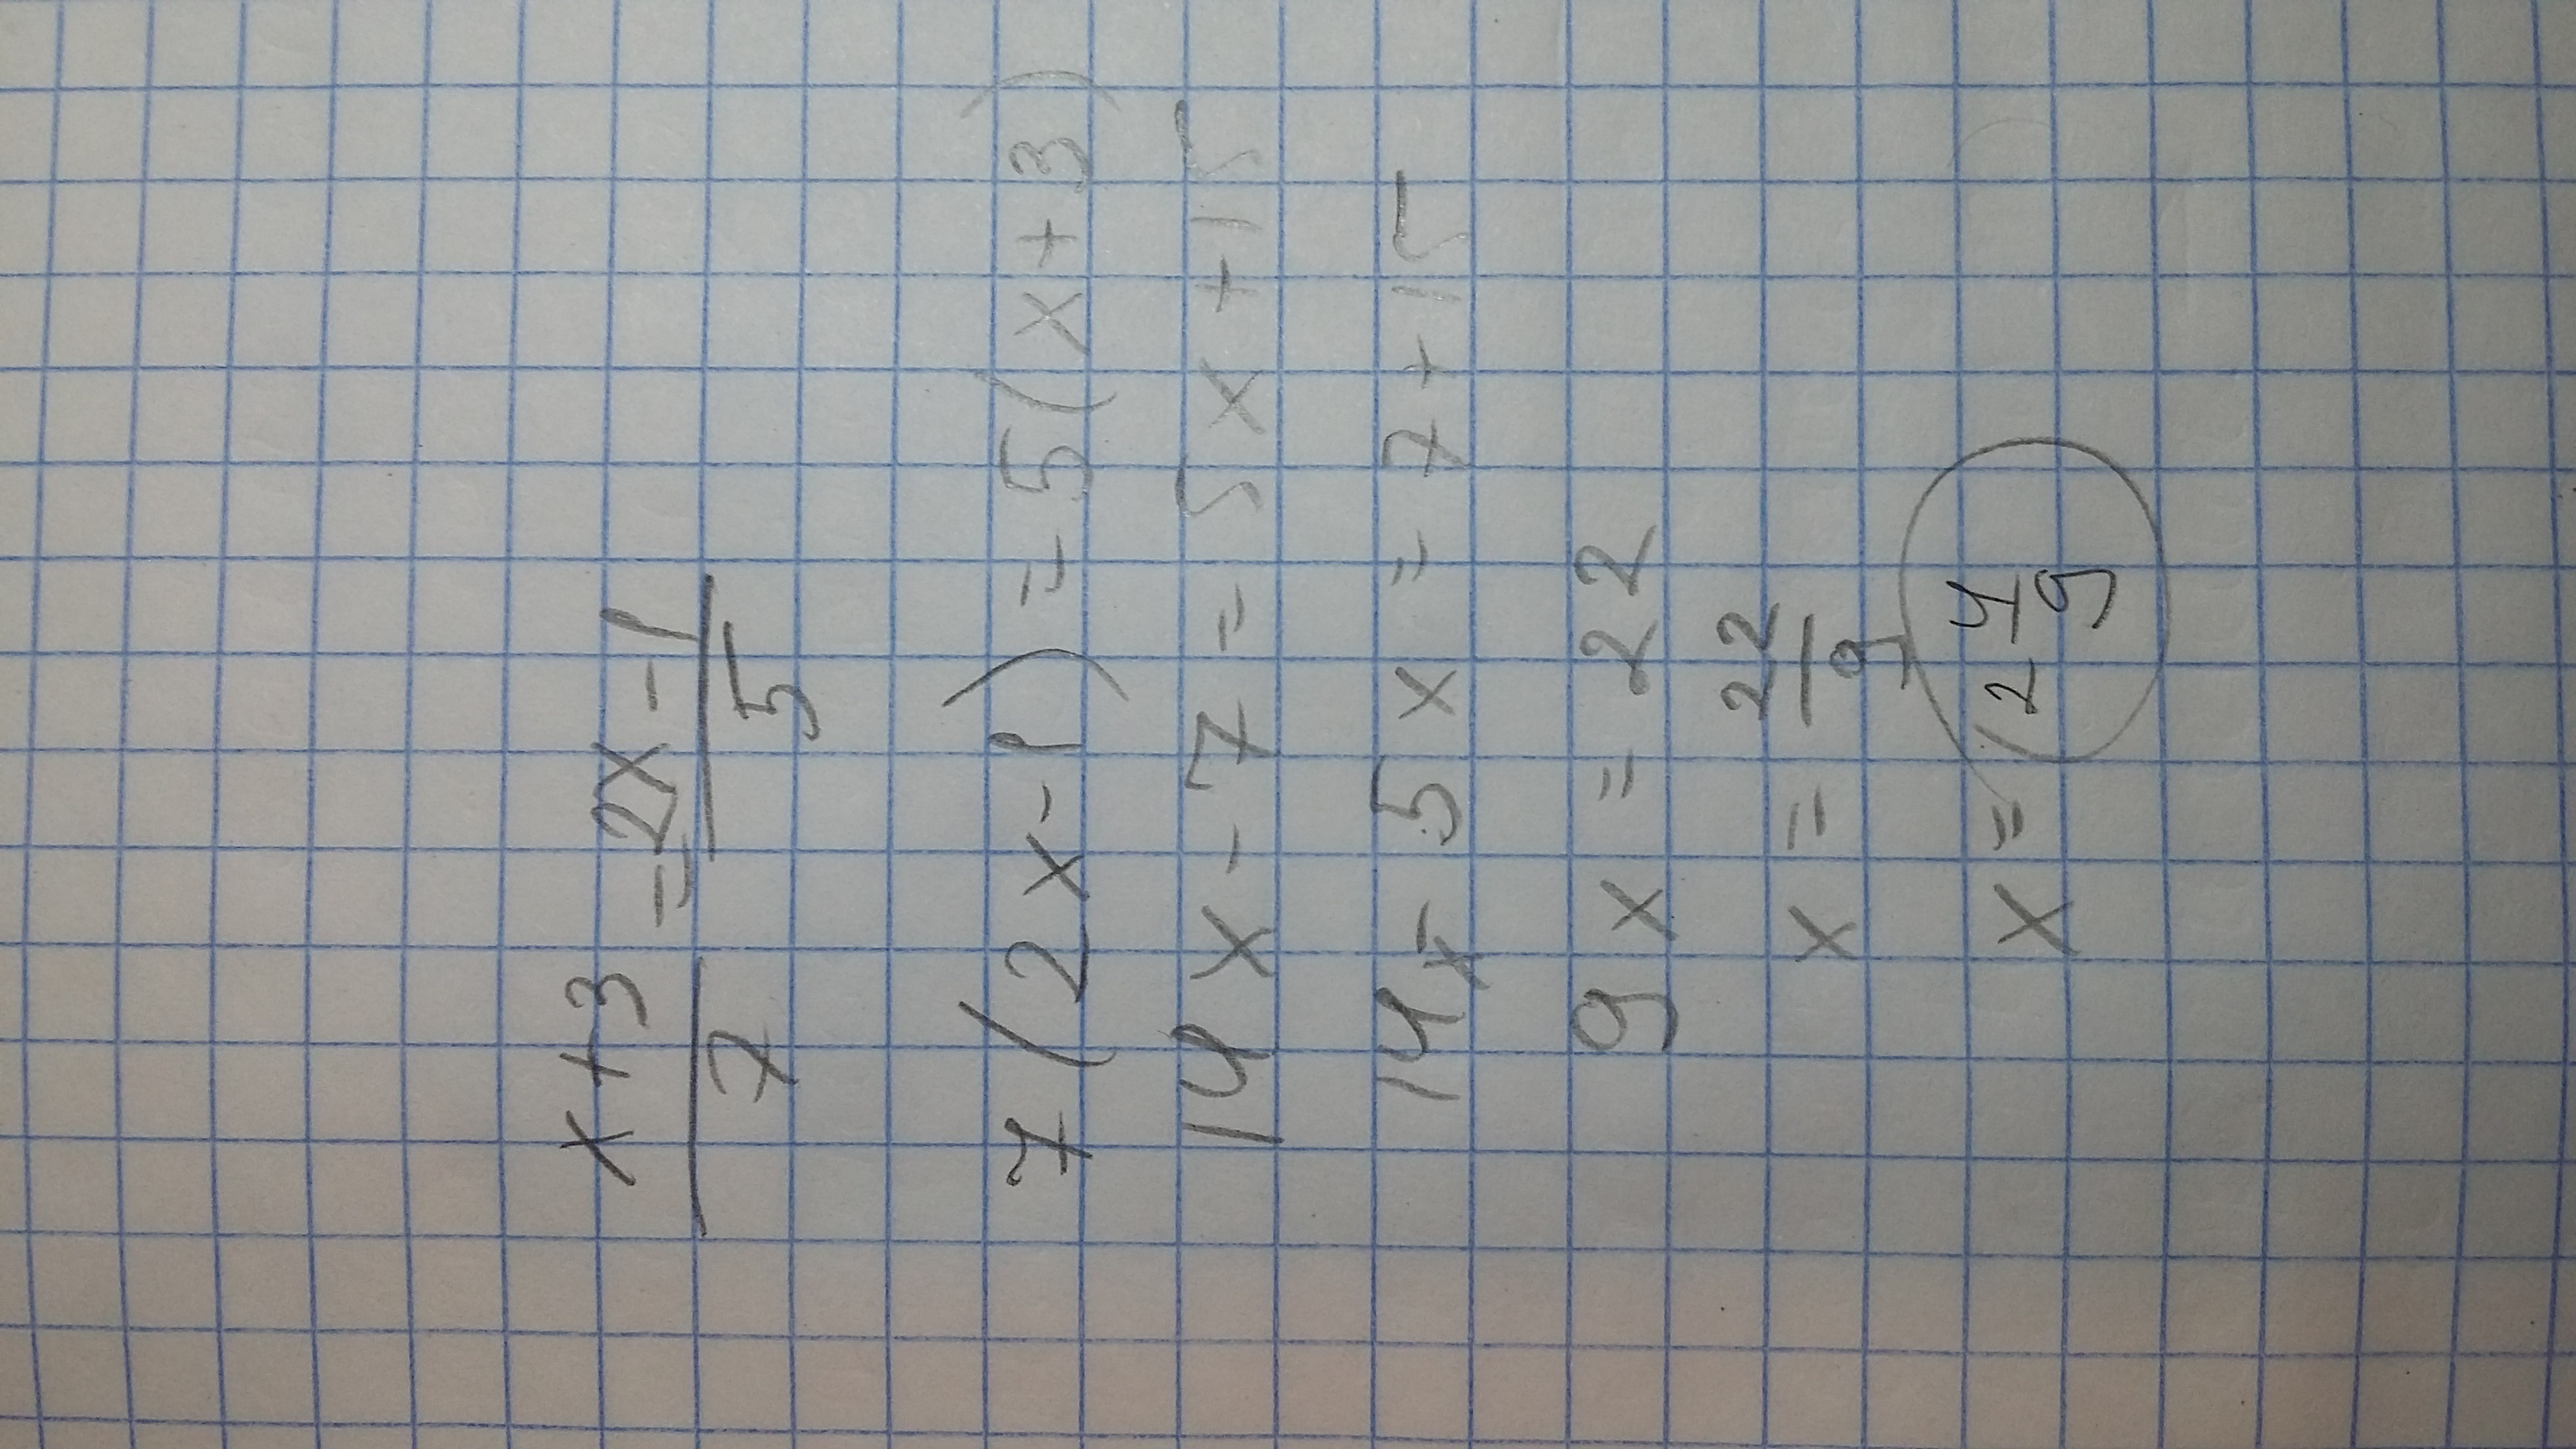 x+3/7 = 2x-1/5
7(2x-1) = 5(x+3)
14x-7=5x+15
14x-5x=7+15
9x=22
x=22/9
x=2 4/9